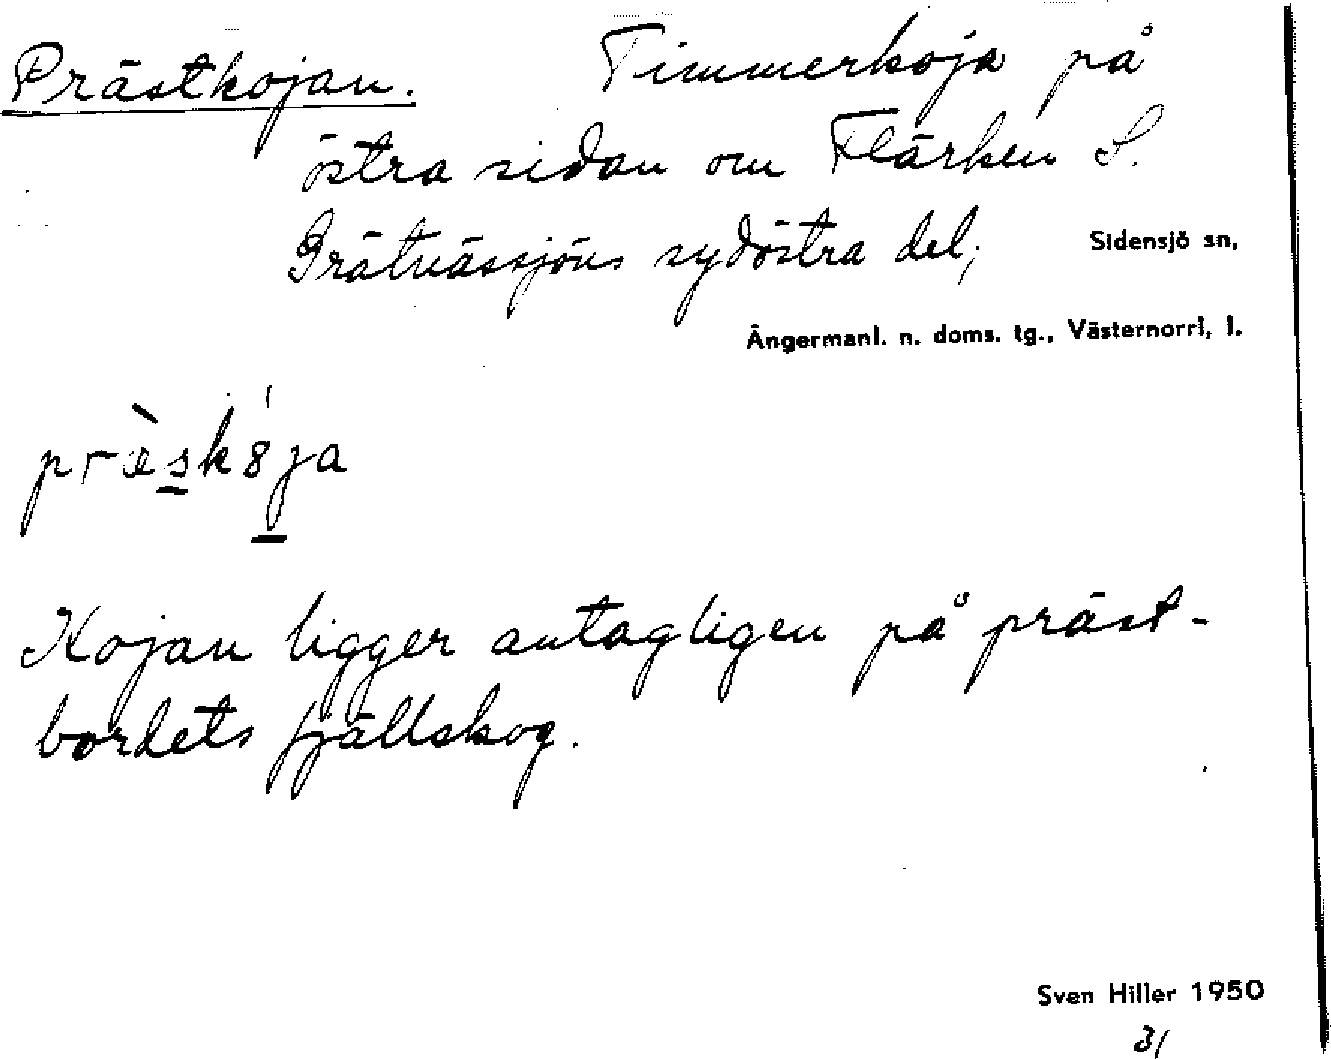 Prästkojan. Timmerkoja på
östra sidan om Flärken S.
Grätnässjöns sydöstra del;
Sidensjö sn,
Ångermanl. n. doms. tg., Västernorrl, l.
præ̀sk8́ja
Kojan ligger antagligen på präst-
bordets fjällskog.
Sven Hiller 1950
31